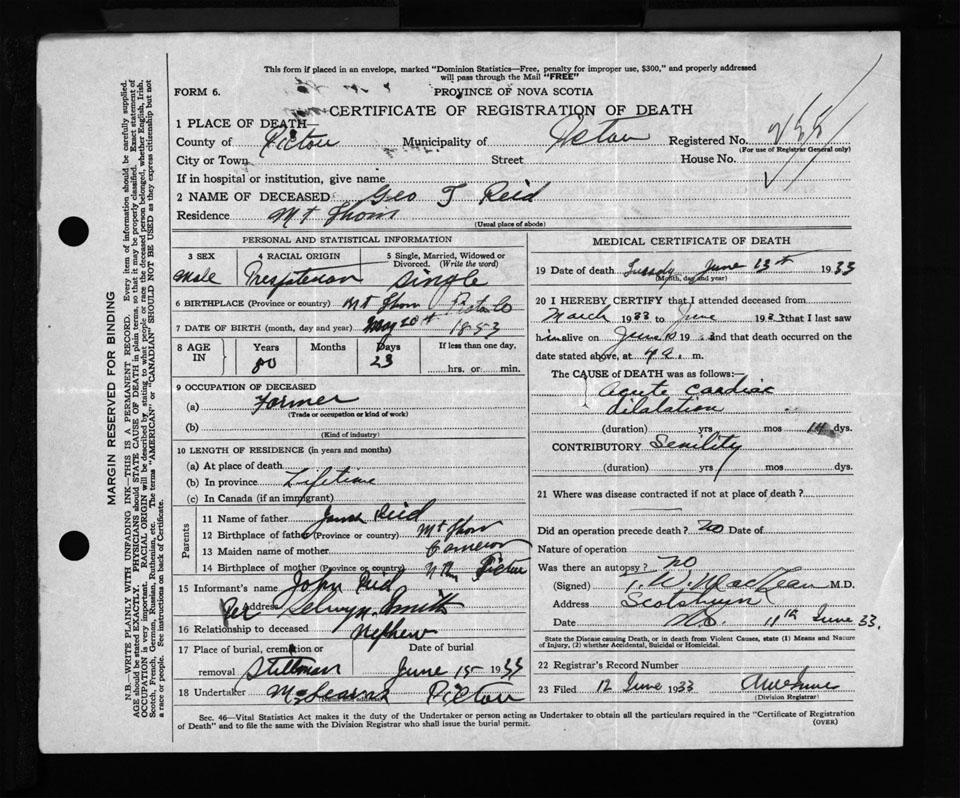 This form if placed in an envelope, marked "Dominion Statistics—Free, penalty for improper use, $300," and properly addressed
will pass through the Mail "FREE"
FORM 6.
PROVINCE OF NOVA SCOTIA
CERTIFICATE OF REGISTRATION OF DEATH
1 PLACE OF DEATH—
County of Pictou Municipality of Pictou Registered No.
(For use of Registrar General only)
City or Town Street House No.
If in hospital or institution, give name
2 NAME OF DECEASED Geo T Reid
Residence Mt Thom
(Usual place of abode)
PERSONAL AND STATISTICAL INFORMATION
3 SEX 4 RACIAL ORIGIN 5 Single, Married, Widowed or
Divorced. (Write the word)
Male Single
6 BIRTHPLACE (Province or country) Mt Thom Pictou Co
7 DATE OF BIRTH (month, day and year) May 20th 1853
8 AGE IN Years Months Days If less than one day,
80 23 hrs. or min.
9 OCCUPATION OF DECEASED
(a) Farmer
(Trade or occupation or kind of work)
(b)
(Kind of industry)
10 LENGTH OF RESIDENCE (in years and months)
(a) At place of death
(b) In province Lifetime
(c) In Canada (if an immigrant)
Parents
11 Name of father Reid
12 Birthplace of father (Province or country) Mt Thom
13 Maiden name of mother Cameron
14 Birthplace of mother (Province or country) Pictou
15 Informant's name John Reid
Address Per Selwyn Smith
16 Relationship to deceased Nephew
17 Place of burial, cremation or Date of burial
removal Stillman June 15 1933
18 Undertaker Pictou
(Name and address)
MEDICAL CERTIFICATE OF DEATH
19 Date of death Tuesday June 13th 1933
(Month, day and year)
20 I HEREBY CERTIFY that I attended deceased from
March 1933 to June 1933 that I last saw
him alive on June 10 19 3 and that death occurred on the
date stated above, at m.
The CAUSE of DEATH was as follows:
Acute Cardiac
dilatation
(duration) yrs mos 14 dys.
CONTRIBUTORY Senility
(duration) yrs mos dys.
21 Where was disease contracted if not at place of death?
Did an operation precede death? no Date of
Nature of operation
Was there an autopsy? no
(Signed) W. MacLean M.D.
Address Scotsburn
Date N.S. 11th June 33.
State the Disease causing Death, or in death from Violent Causes, state (1) Means and Nature
of Injury, (2) whether Accidental, Suicidal or Homicidal.
22 Registrar's Record Number
23 Filed 12 June 1933
(Division Registrar)
Sec. 46—Vital Statistics Act makes it the duty of the Undertaker or person acting as Undertaker to obtain all the particulars required in the "Certificate of Registration
of Death" and to file the same with the Division Registrar who shall issue the burial permit.
(OVER)
MARGIN RESERVED FOR BINDING
N.B.—WRITE PLAINLY WITH UNFADING INK—THIS IS A PERMANENT RECORD. Every item of information should be carefully supplied.
AGE should be stated EXACTLY. PHYSICIANS should STATE CAUSE OF DEATH in plain terms, so that it may be properly classified. Exact statement of
OCCUPATION is very important. RACIAL ORIGIN will be described by stating to what people or race the deceased person belonged, whether English, Irish,
Scotch, French, German, Russian, Ruthenian, etc. The terms "AMERICAN" or "CANADIAN" SHOULD NOT BE USED as they express citizenship but not
a race or people. See instructions on back of Certificate.